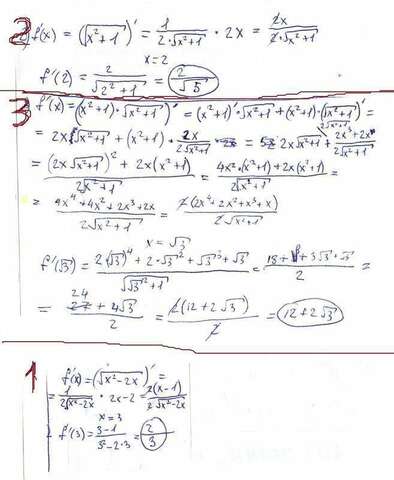 2 f'(x) = (√x²+1)' = 1/(2·√x²+1) · 2x = 2x/(2·√x²+1)
x=2
f'(2) = 2/√2²+1 = 2/√5
3 f'(x) = (x²+1)·√x²+1)' = (x²+1)'·√x²+1 + (x²+1)·(√x²+1)' =
= 2x√x²+1 + (x²+1)· 2x/(2√x²+1) = 2x√x²+1 + (2x³+2x)/(2√x²+1)
= ((2x√x²+1)² + 2x(x²+1))/(2√x²+1) = (4x²·(x²+1)+2x(x²+1))/(2√x²+1) =
= (4x⁴+4x²+2x³+2x)/(2√x²+1) = 2(2x⁴+2x²+x³+x)/(2√x²+1)
x=√3
f'(√3) = (2(√3)⁴+2·√3²+√3³+√3)/(√√3²+1) = (18+6+3√3+√3)/2 =
= (24+4√3)/2 = 2(12+2√3)/2 = 12+2√3
1
f'(x) = (√x²-2x)' =
= 1/(2√x²-2x) · 2x-2 = 2(x-1)/(2√x²-2x)
x=3
f'(3) = (3-1)/(3²-2·3) = 2/3